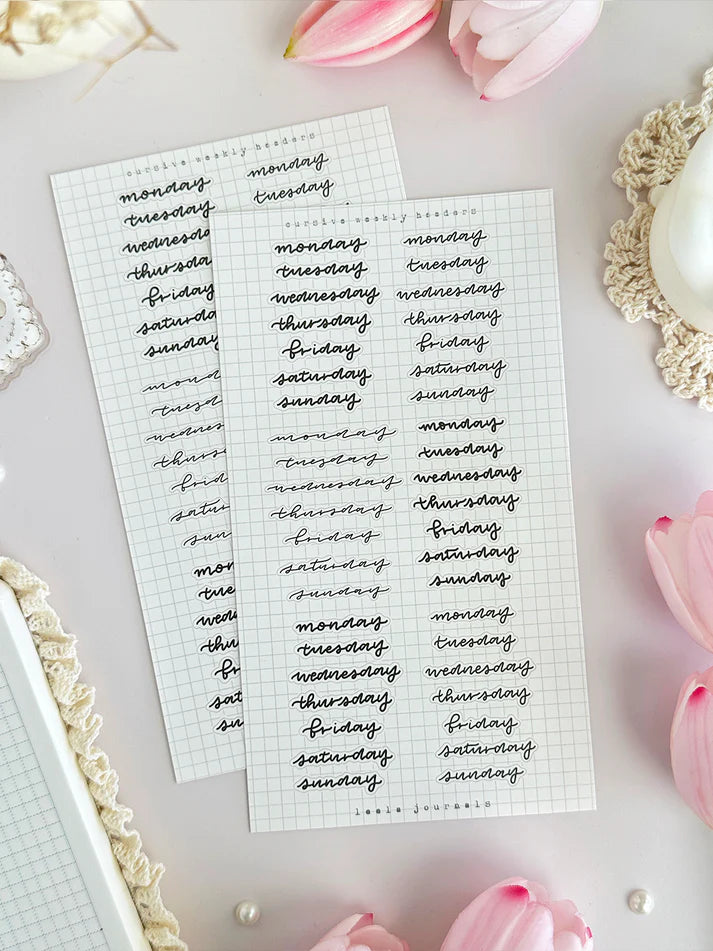 cursive weekly headers
monday
tuesday
wednesda
thursda
friday
saturd
sunday
mond
tuesd
wednes
thurs
frid
satur
sun
mon
tue
wed
thu
fr
sat
su
monday
tuesday
cursive weekly headers
monday
tuesday
wednesday
thursday
friday
saturday
sunday
monday
tuesday
wednesday
thursday
friday
saturday
sunday
monday
tuesday
wednesday
thursday
friday
saturday
sunday
monday
tuesday
wednesday
thursday
friday
saturday
sunday
monday
tuesday
wednesday
thursday
friday
saturday
sunday
monday
tuesday
wednesday
thursday
friday
saturday
sunday
journals